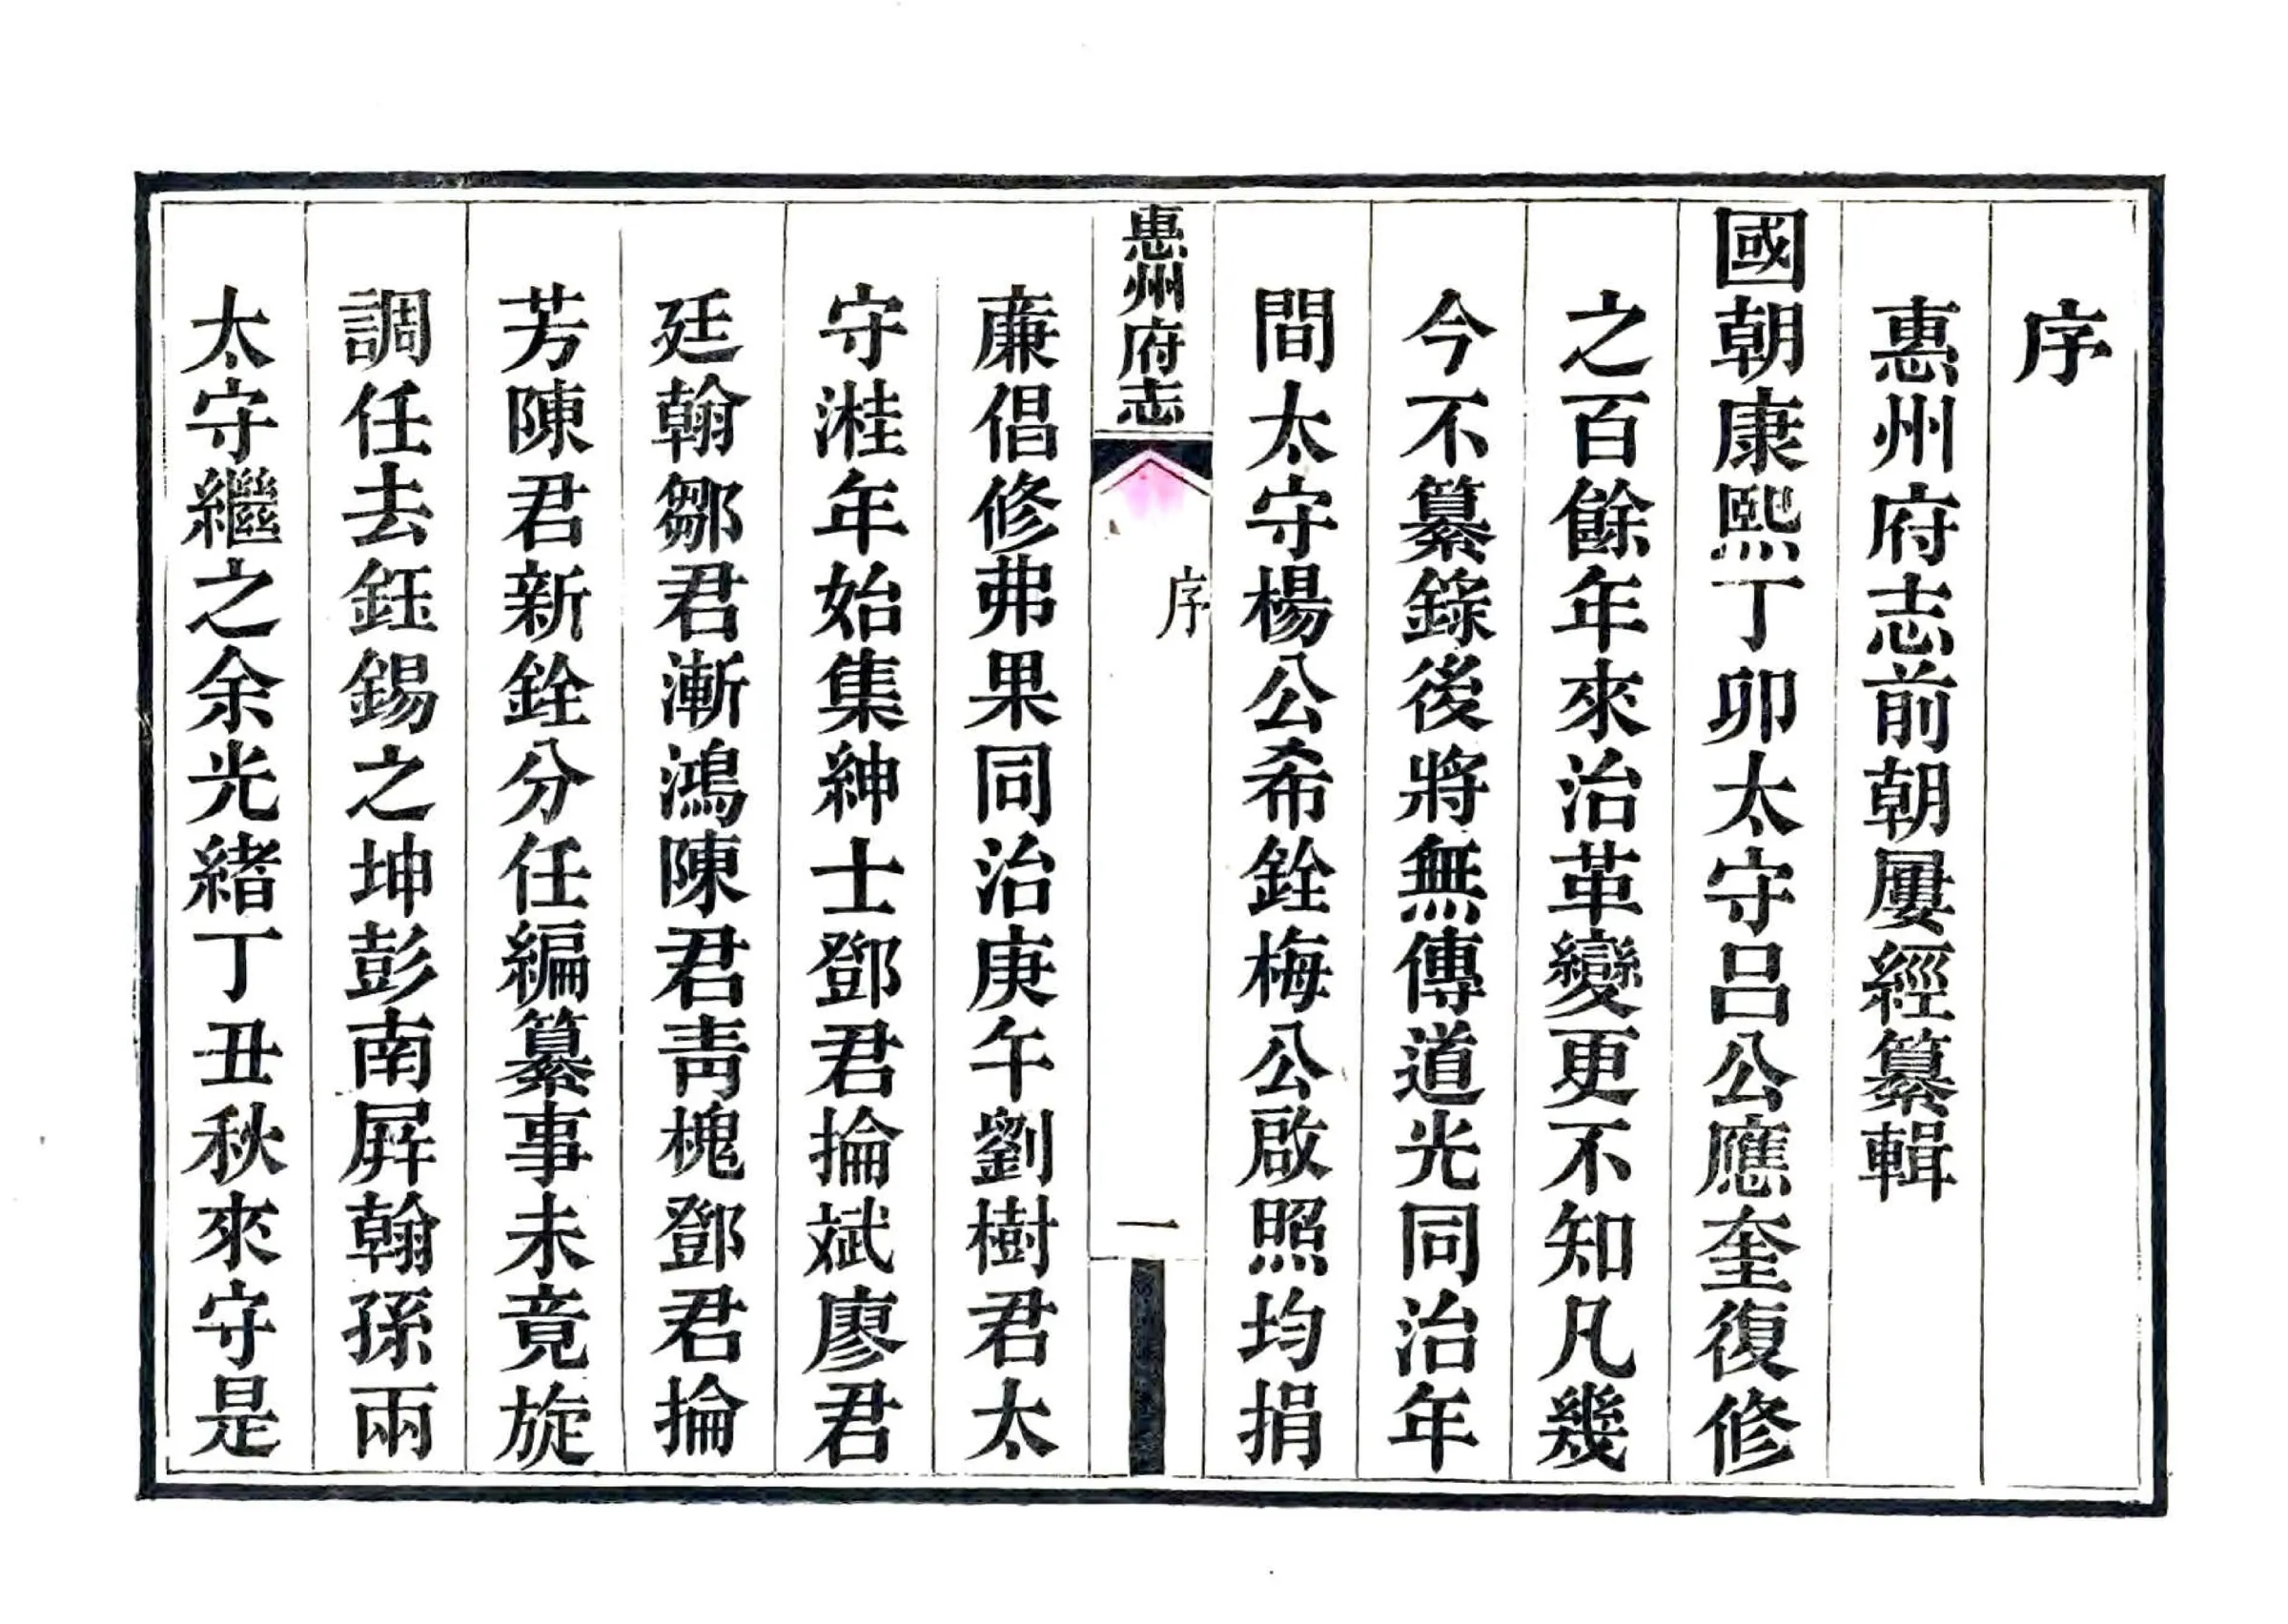 序
惠州府志前朝屢經纂輯
國朝康熙丁卯太守呂公應奎復修
之百餘年來治革變更不知凡幾
今不纂錄後將無傳道光同治年
間太守楊公希銓梅公啟照均捐
惠州府志
序
一
亷倡修弗果同治庚午劉樹君太
守溎年始集紳士鄧君掄斌廖君
廷翰鄒君漸鴻陳君靑槐鄧君掄
芳陳君新銓分任編纂事未竟旋
調任去鈺錫之坤彭南屛翰孫兩
太守繼之余光緒丁丑秋來守是